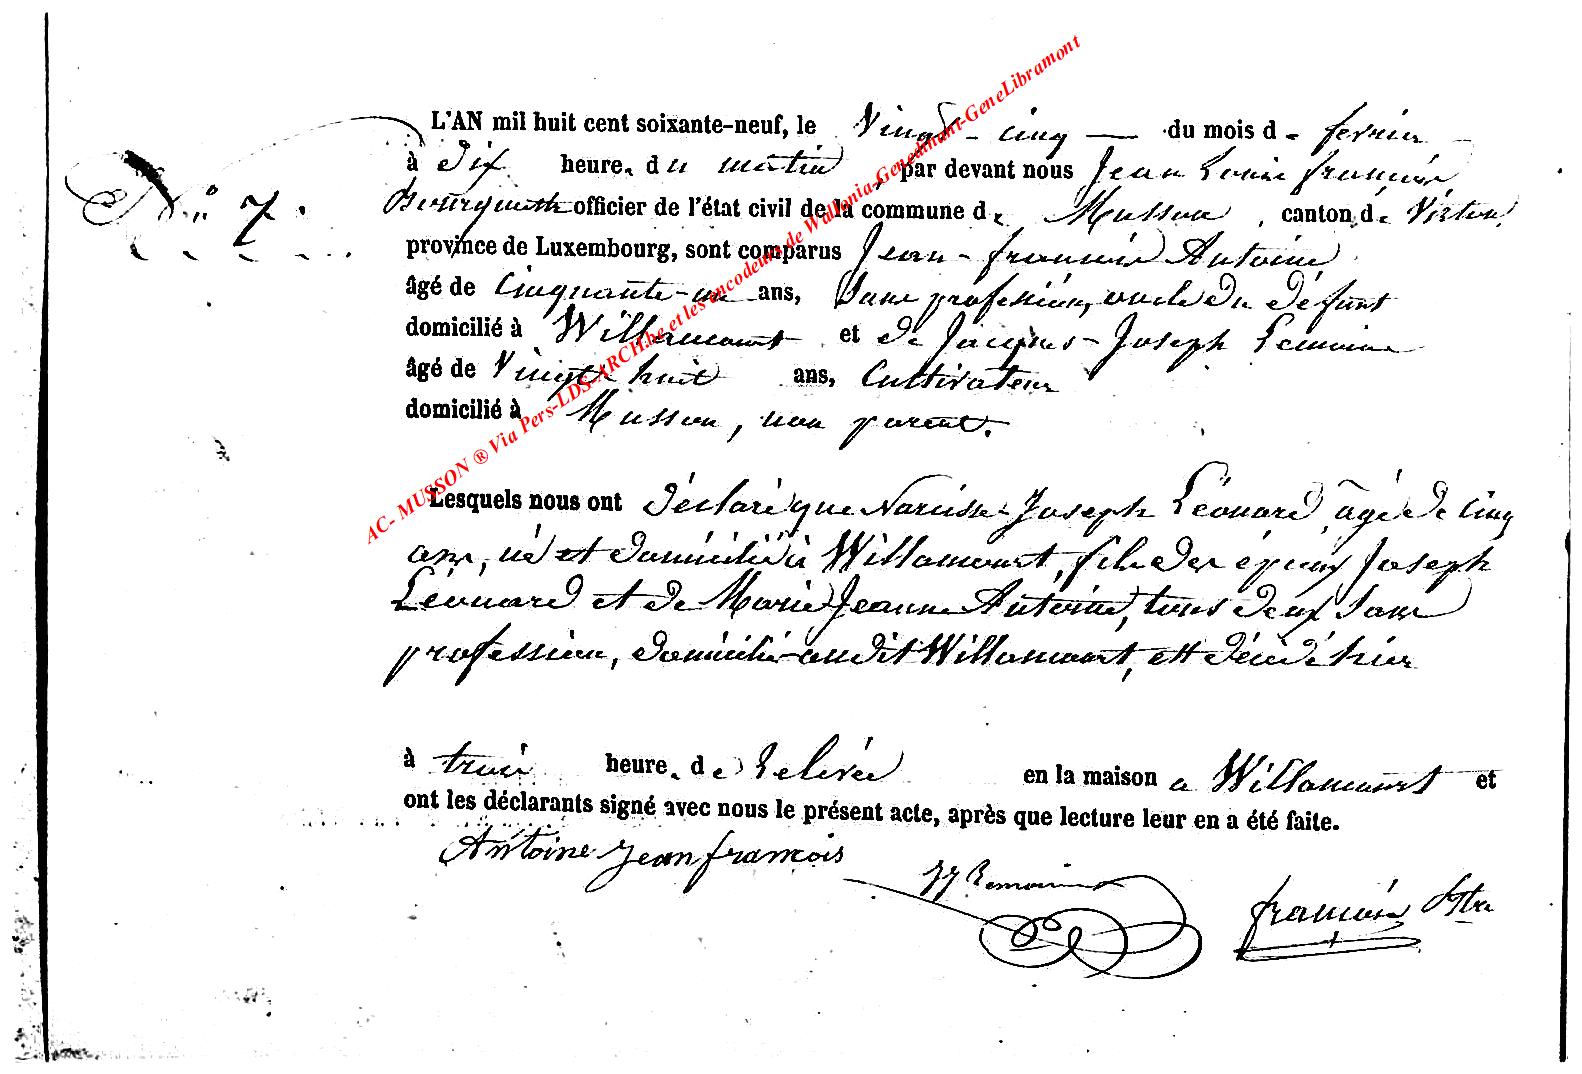 N° 7.
L'AN mil huit cent soixante-neuf, le Vingt-cinq du mois de fevrier
à dix heure du matin, par devant nous Jean Louis françois
officier de l'état civil de la commune de Musson, canton de Virton,
province de Luxembourg, sont comparus Jean-françois Antoine
âgé de Cinquante-un ans, Sans profession, oncle du défunt
domicilié à Willancourt et de Jacques-Joseph Lemoine
âgé de Vingt huit ans, Cultivateur
domicilié à Musson, non parent.
Lesquels nous ont déclaré que Narcisse-Joseph Léonard, âgé de cinq
ans, né et domicilié à Willancourt, fils des époux Joseph
Léonard et de Marie Jeanne Antoine, tous deux Sans
profession, domiciliés audit Willancourt, est décédé hier
à trois heure de Relevée en la maison a Willancourt et
ont les déclarants signé avec nous le présent acte, après que lecture leur en a été faite.
Antoine Jean francois
JJ Lemoine
françois
AC- MUSSON ® Via Pers-LDS-ARCH.be et les encodeurs de Wallonia-Genedinant-GeneLibramont